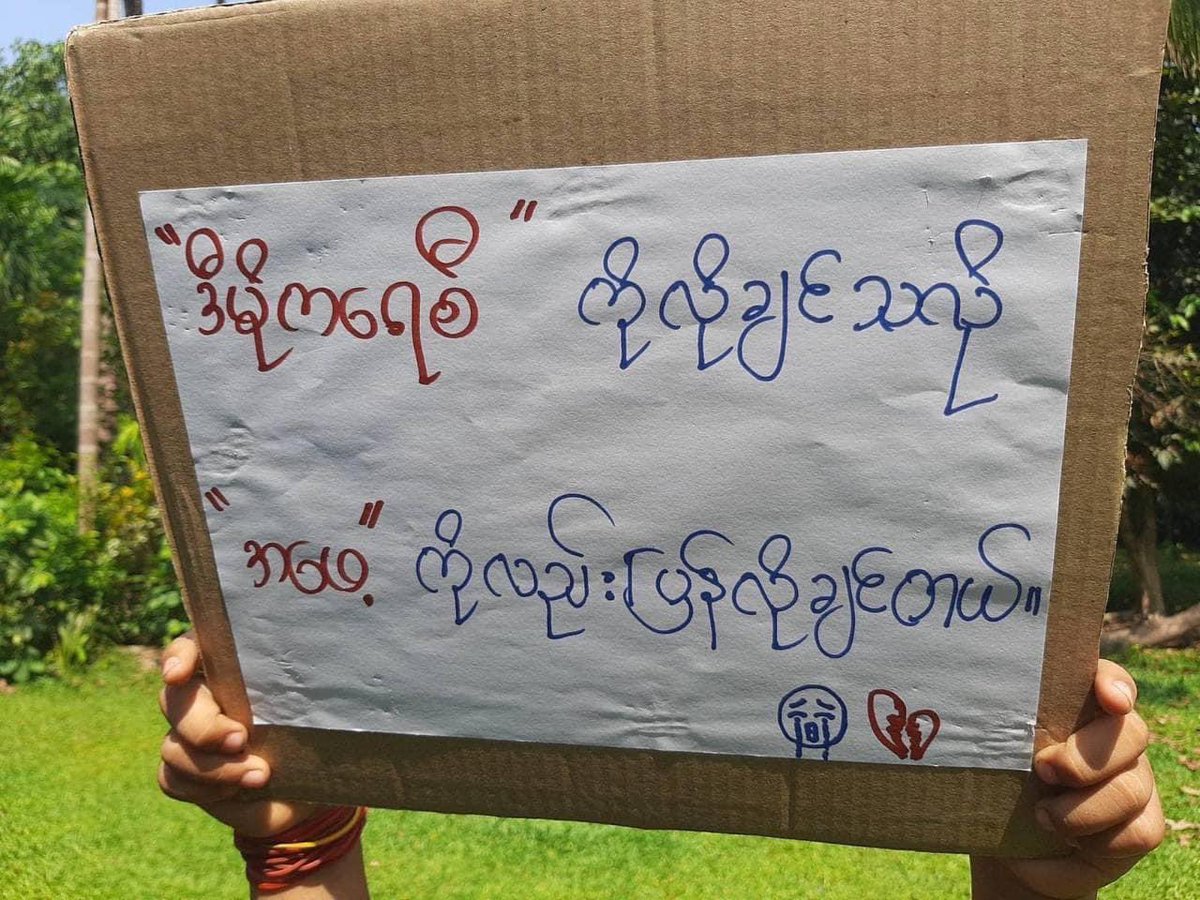 "ဒီမိုကရေစီ" ကိုလိုချင်သလို
"အဖေ့" ကိုလည်းပြန်လိုချင်တယ်။